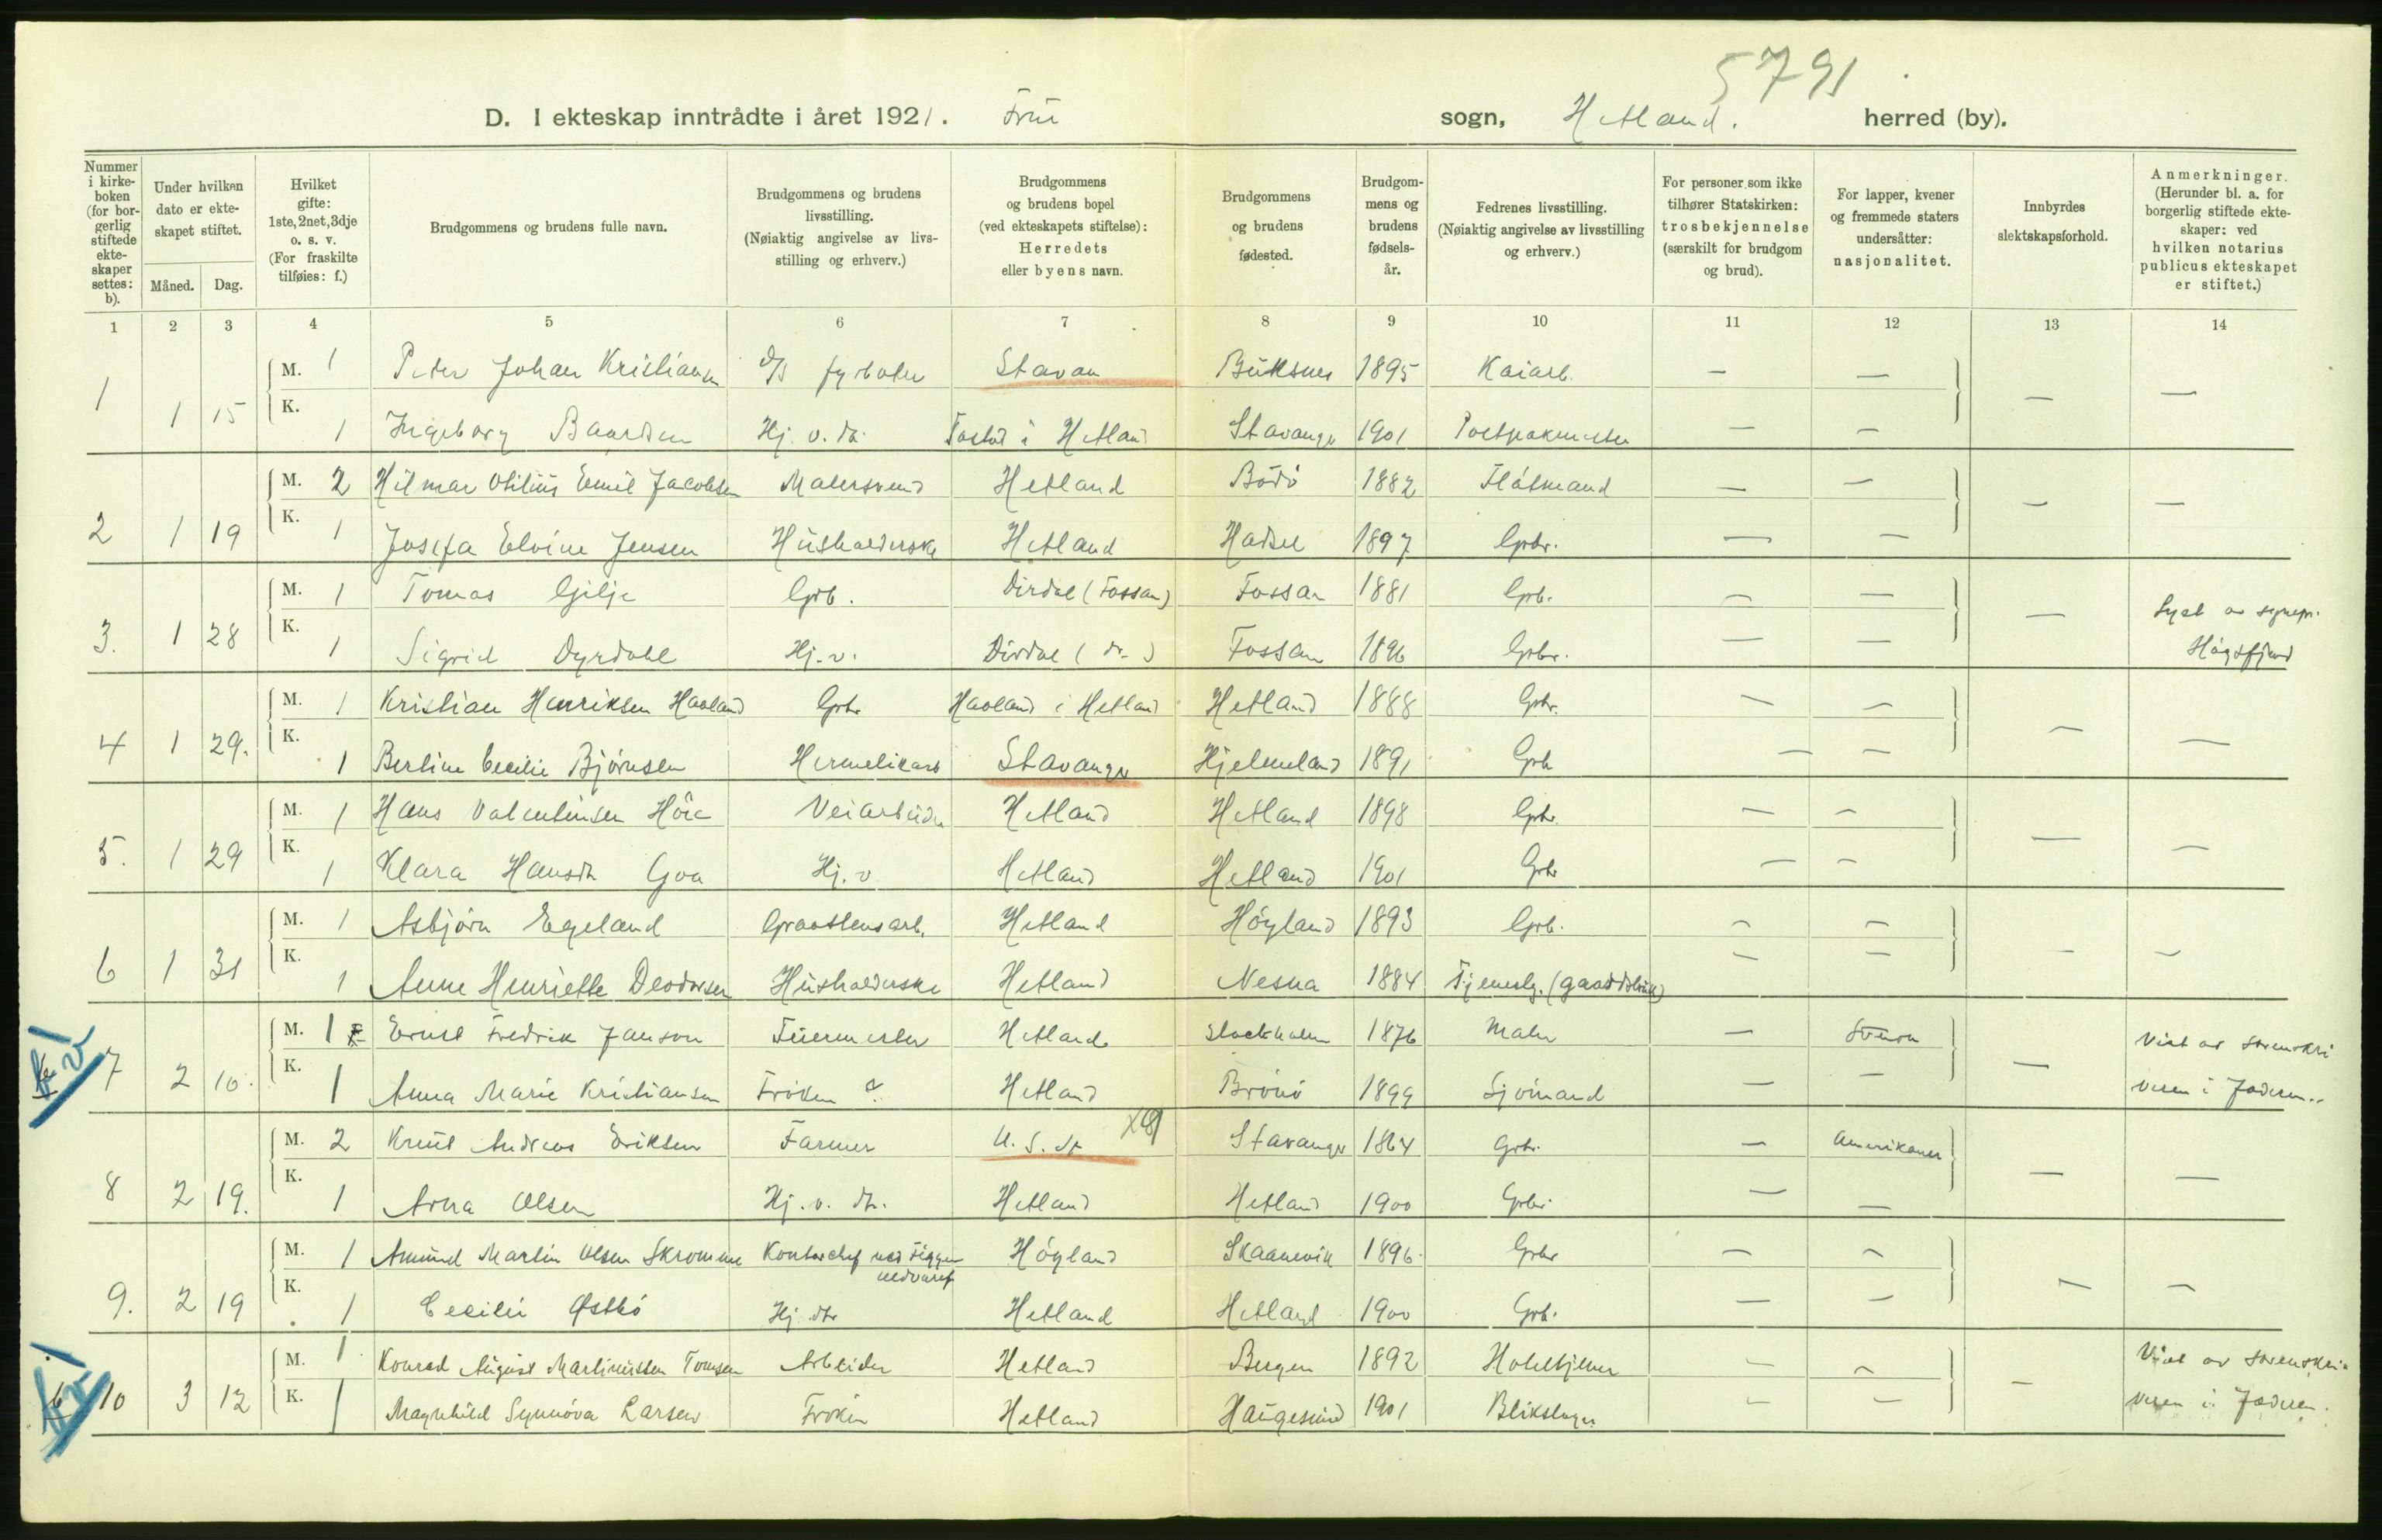 5791
D. I ekteskap inntrådte i året 1921. Frue sogn, Hetland. herred (by).
Nummer i kirkeboken (for borgerlig stiftede ekteskaper settes: b).
Under hvilken dato er ekteskapet stiftet.
Måned. Dag.
Hvilket gifte: 1ste, 2net, 3dje o. s. v. (For fraskilte tilføies: f.)
Brudgommens og brudens fulle navn.
Brudgommens og brudens livsstilling. (Nøiaktig angivelse av livsstilling og erhverv.)
Brudgommens og brudens bopel (ved ekteskapets stiftelse): Herredets eller byens navn.
Brudgommens og brudens fødested.
Brudgommens og brudens fødselsår.
Fedrenes livsstilling. (Nøiaktig angivelse av livsstilling og erhverv.)
For personer som ikke tilhører Statskirken: trosbekjennelse (særskilt for brudgom og brud).
For lapper, kvener og fremmede staters undersåtter: nasjonalitet.
Innbyrdes slektskapsforhold.
Anmerkninger. (Herunder bl. a. for borgerlig stiftede ekteskaper: ved hvilken notarius publicus ekteskapet er stiftet.)
1 2 3 4 5 6 7 8 9 10 11 12 13 14
1 1 15 M. 1 Peter Johan Kristiansen d/s fyrbøter Stavan Buksnes 1895 Kaiarb. — — — —
K. 1 Ingeborg Baardsen Hj. v. dr. i Hetland Stavanger 1901 — —
2 1 19 M. 2 Hilmar Otilius Emil Jacobsen Malersvend Hetland Bodö 1882 Flåtmand — — — —
K. 1 Josefa Elvine Jensen Husholderske Hetland Hadsel 1897 Grbr. — —
3. 1 28 M. 1 Tomas Gilje Grb. Dirdal (Fossan) Fossan 1881 Grb. — — — Lyst av sognepr.
K. 1 Sigrid Dyrdahl Hj. v. Dirdal (do) Fossan 1896 Grbr. — — Høgsfjord
4 1 29. M. 1 Kristian Henriksen Haaland Grbr Haaland i Hetland Hetland 1888 Grbr. — — — —
K. 1 Bertine Cecilie Bjørnsen Hermetikarb Stavanger Hjelmeland 1891 Grb — —
5. 1 29 M. 1 Hans Valentinsen Höie Veiarbeider Hetland Hetland 1898 Grbr. — — — —
K. 1 Klara Hansdtr Goa Hj. v Hetland Hetland 1901 Grbr — —
6 1 31 M. 1 Asbjörn Egeland Graastensarb. Hetland Höyland 1893 Grb. — — — —
K. 1 Anne Henriette Deodorsen Husholderske Hetland Nesna 1884 — —
7 2 10. M. 1 Ernst Fredrik Janson Hetland Stockholm 1876 Maler — Svensk — Viet av sorenskri
K. 1 Anna Marie Kristiansen Fröken ? Hetland Brönö 1899 Sjömand — — veren i Jæderen..
8 2 19. M. 2 Knut Andreas Eriksen Farmer U. S. St Stavanger 1864 Grbr. — Amerikaner — —
K. 1 Anna Olsen Hj. v. dtr. Hetland Hetland 1900 Grbr. — —
9. 2 19 M. 1 Amund Martin Olsen Skromme Kontorchef ved Höyland Skaanevik 1896 Grbr — — — —
K. 1 Cecilie Østbö Hj. dtr Hetland Hetland 1900 Grb. — —
10 3 12 M. 1 Konrad August Martinussen Tomsen Arbeider Hetland Bergen 1892 Hoteltjener — — — Viet av sorenskri-
K. 1 Magnhild Synnöva Larsen Fröken Hetland Haugesund 1901 Blikslager — — veren i Jæderen.